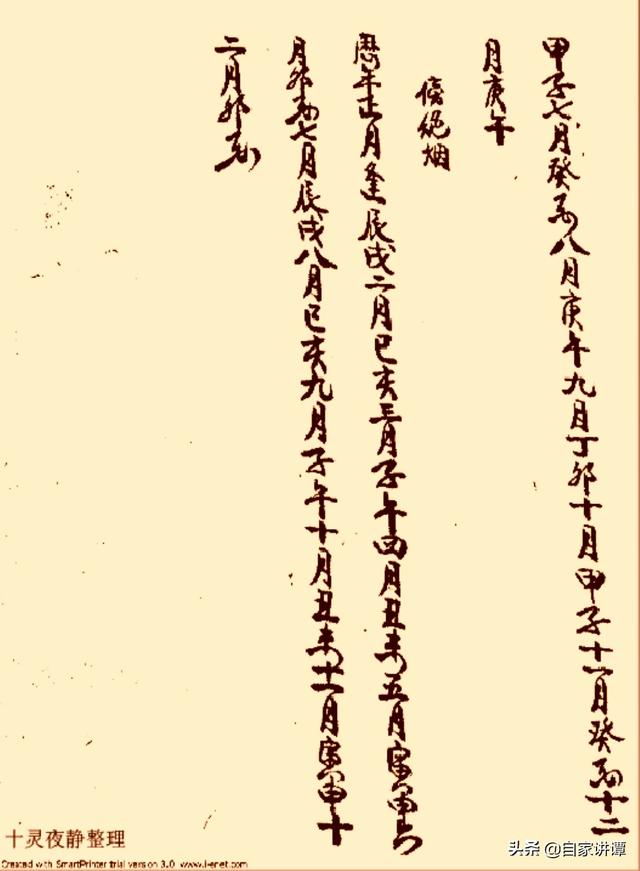 甲子七月癸酉八月庚午九月丁卯十月甲子十一月癸酉十二
月庚午
傍绝烟
歷年正月逢辰戌二月巳亥三月子午四月丑未五月寅申六
月卯酉七月辰戌八月巳亥九月子午十月丑未十一月寅申十
二月卯酉
十灵夜静整理
Created with SmartPrinter trial version 3.0 www.i-enet.com
头条 @自家讲谭